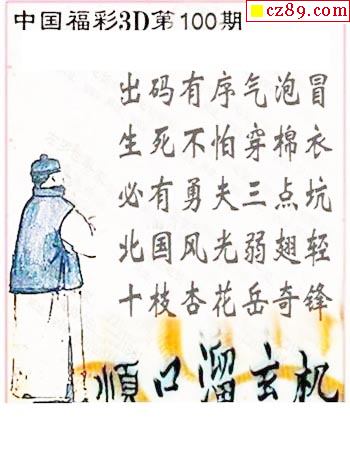 cz89.com
中国福彩3D第100期
出码有序气泡冒
生死不怕穿棉衣
必有勇夫三点坑
北国风光弱翅轻
十枝杏花岳奇锋
顺口溜玄机